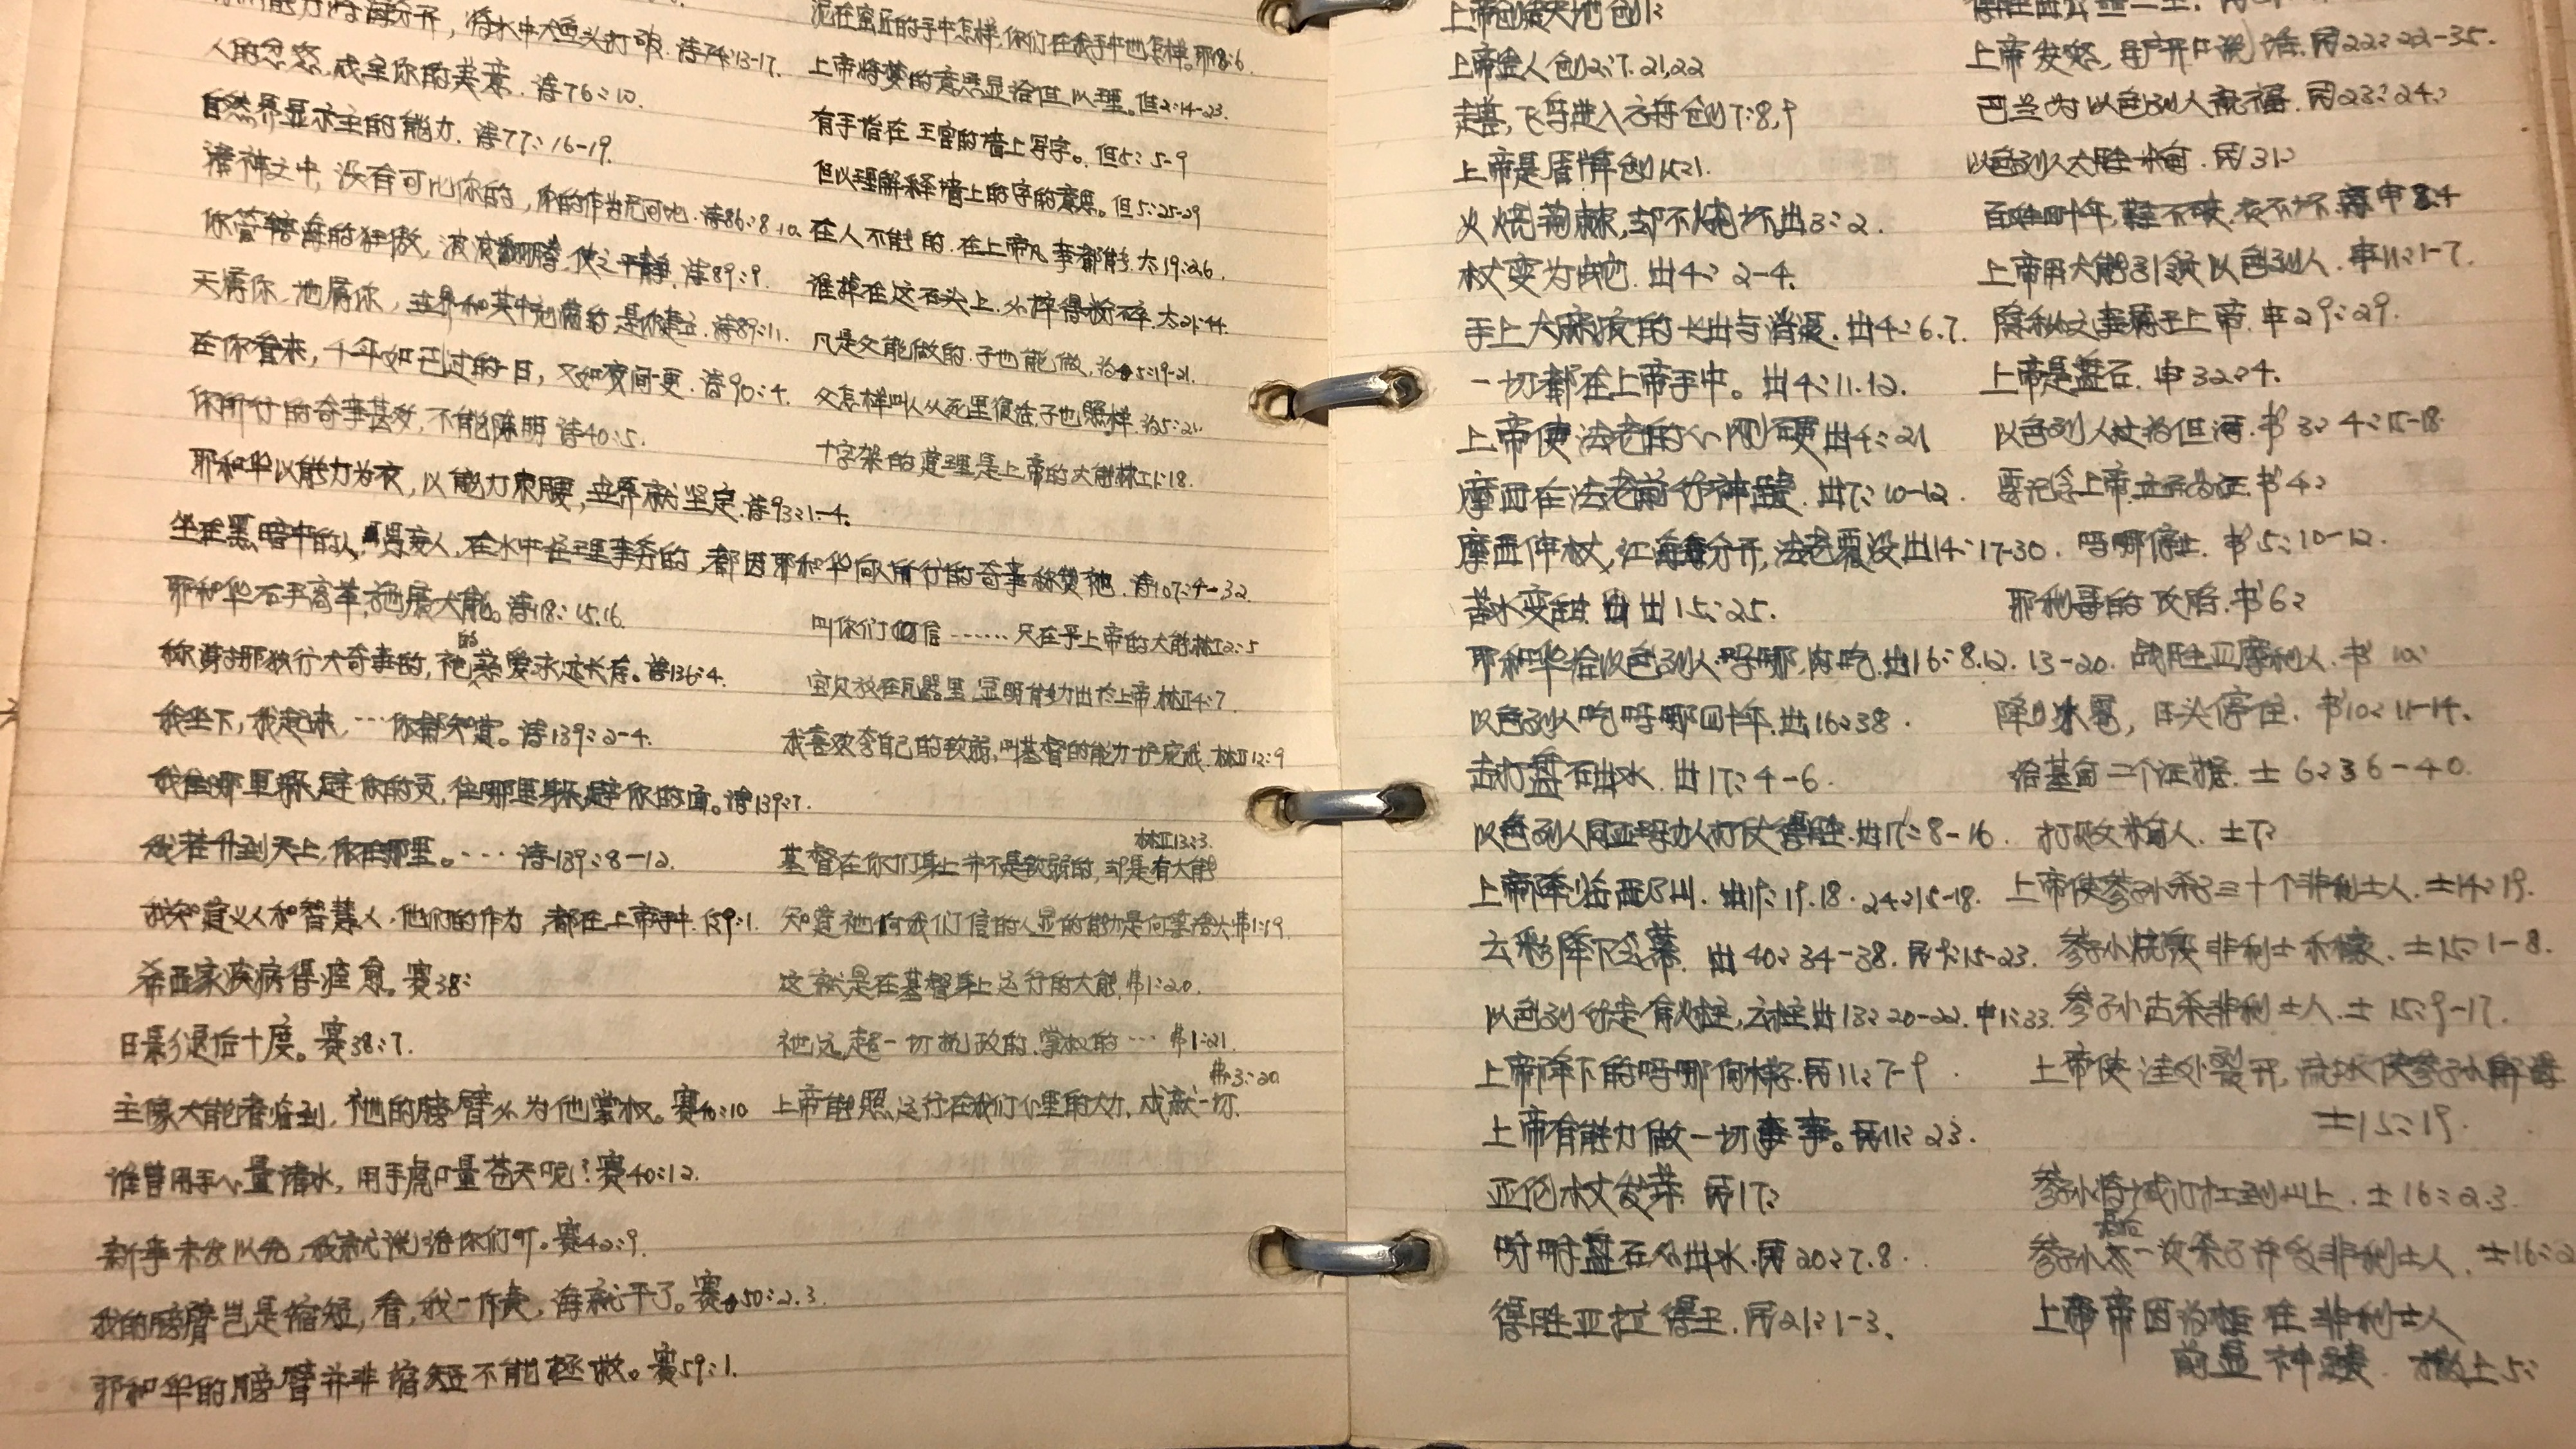 你的能力将海分开，将水中大鱼头打破．诗74:13-17.
人的忿怒，成全你的美意．诗76:10.
自然界显示主的能力．诗77:16-19.
诸神之中，没有可比你的，你的作为无可比．诗86:8.10.
你管辖海的狂傲，波浪翻腾，使之平静．诗89:9.
天属你，地属你，世界和其中充满的是你建立．诗89:11.
在你看来，千年如已过的一日，又如夜间一更．诗90:4.
你所行的奇事甚多，不能陈明 诗40:5.
耶和华以能力为衣，以能力束腰，世界就坚定．诗93:1-4.
坐在黑暗中的人，愚妄人，在水中经理事务的，都因耶和华向人所行的奇事称赞祂．诗107:4-32.
耶和华右手高举，施展大能。诗118:15.16.
称谢那独行大奇事的，祂的慈爱永远长存。诗136:4.
我坐下，我起来，…你都知道。诗139:2-4.
我往哪里躲避你的灵，往哪里躲避你的面。诗139:7.
我若升到天上，你在那里。…… 诗139:8-12.
我知道义人和智慧人，他们的作为，都在上帝手中．传9:1.
希西家疾病得痊愈。赛38:
日影退后十度。赛38:7.
主像大能者临到，祂的膀臂必为他掌权。赛40:10
谁曾用手心量诸水，用手虎口量苍天呢？赛40:12.
新事未发以先，我就说给你们听。赛42:9.
我的膀臂岂是缩短，看，我一斥责，海就干了。赛50:2.3.
耶和华的膀臂并非缩短不能拯救。赛59:1.
泥在窑匠的手中怎样，你们在我手中也怎样。耶18:6.
上帝将梦的意思显给但以理。但2:14-23.
有手指在王宫的墙上写字。但5:5-9
但以理解释墙上的字的意思。但5:25-29
在人不能的．在上帝凡事都能．太19:26.
谁掉在这石头上．必摔得粉碎．太21:44.
凡是父能做的．子也能做．约5:19-21.
父怎样叫人从死里复活，子也照样．约5:21.
十字架的道理是上帝的大能 林I1:18.
叫你们的信……只在乎上帝的大能 林I2:5
宝贝放在瓦器里，显明能力出于上帝．林II4:7.
我喜欢夸自己的软弱，叫基督的能力护庇我．林II12:9
林II13:3.
基督在你们身上并不是软弱的，却是有大能
知道祂向我们信的人显的能力是何等浩大 弗1:19.
这就是在基督身上运行的大能．弗1:20.
祂远超一切执政的．掌权的… 弗1:21.
弗3:20
上帝能照运行在我们心里的大力，成就一切.
上帝创造天地 创1:
上帝造人 创2:7.21,22
走兽，飞鸟进入方舟 创7:8,9
上帝是盾牌 创15:1.
火烧荆棘，却不烧坏 出3:2.
杖变为蛇．出4:2-4.
手上大麻疯的长出与消退．出4:6.7.
一切都在上帝手中。出4:11.12.
上帝使法老的心刚硬 出4:21
摩西在法老前行神迹．出7:10-12.
摩西伸杖，红海分开，法老覆没 出14:17-30.
苦水变甜 出15:25.
耶和华给以色列人吗哪，肉吃．出16:8.12.13-20.
以色列人吃吗哪四十年．出16:38.
击打磐石出水．出17:4-6.
以色列人同亚玛力人打仗得胜．出17:8-16.
上帝降临西乃山．出19:19.18. 24:15-18.
云彩降下会幕．出40:34-38. 民9:15-23.
以色列行走有火柱，云柱 出13:20-22. 申1:33.
上帝降下的吗哪何样子．民11:7-9.
上帝有能力做一切事。民11:23.
亚伦杖发芽．民17:
吩咐磐石出水．民20:7.8.
得胜亚拉得王．民21:1-3.
上帝发怒，母驴开口说话．民22:22-35.
巴兰为以色列人祝福．民23:24:
以色列人大胜米甸．民31:
四十年，鞋不破，衣不坏 申8:4
上帝用大能引领以色列人．申11:1-7.
隐秘之事属于上帝．申29:29.
上帝是磐石．申32:4.
以色列人过约但河．书3: 4:15-18.
要记念上帝，立石为证．书4:
吗哪停止．书5:10-12.
耶利哥的攻陷．书6:
战胜亚摩利人．书10:
降冰雹，日头停住．书10:11-14.
给基甸二个证据．士6:36-40.
打败米甸人．士7:
上帝使参孙杀了三十个非利士人．士14:19.
参孙烧毁非利士禾稼．士15:1-8.
参孙击杀非利士人．士15:9-17.
上帝使洼处裂开，流水使参孙解渴
士15:19.
参孙将城门扛到山上．士16:2.3.
参孙最后一次杀了许多非利士人．士16:2
上帝因约柜在非利士人
前显神迹．撒上5: